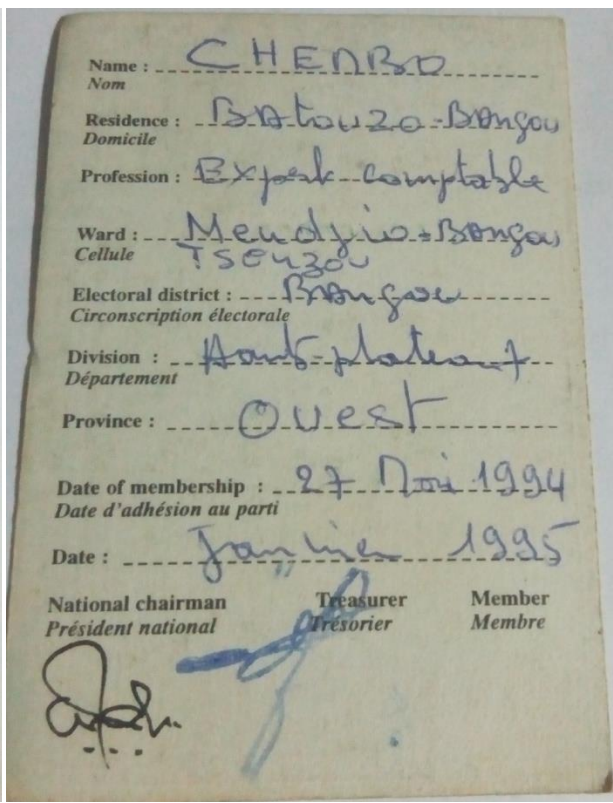 Name : CHENBO
Nom
Residence : BAtouzo-BAngou
Domicile
Profession : Expert-comptable
Ward : Mendjio-BAngou
Cellule TSEUZOU
Electoral district : BAngou
Circonscription électorale
Division : Hauts-plateaux
Département
Province : OUEST
Date of membership : 27 Mai 1994
Date d'adhésion au parti
Date : Janvier 1995
National chairman Treasurer Member
Président national Trésorier Membre